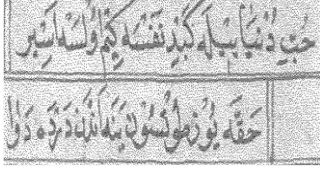 حب دنیا بیله کبدر نفسه کیم اولسه اسیر
حقه یوز طوتسون ینه اندن در ده دوا